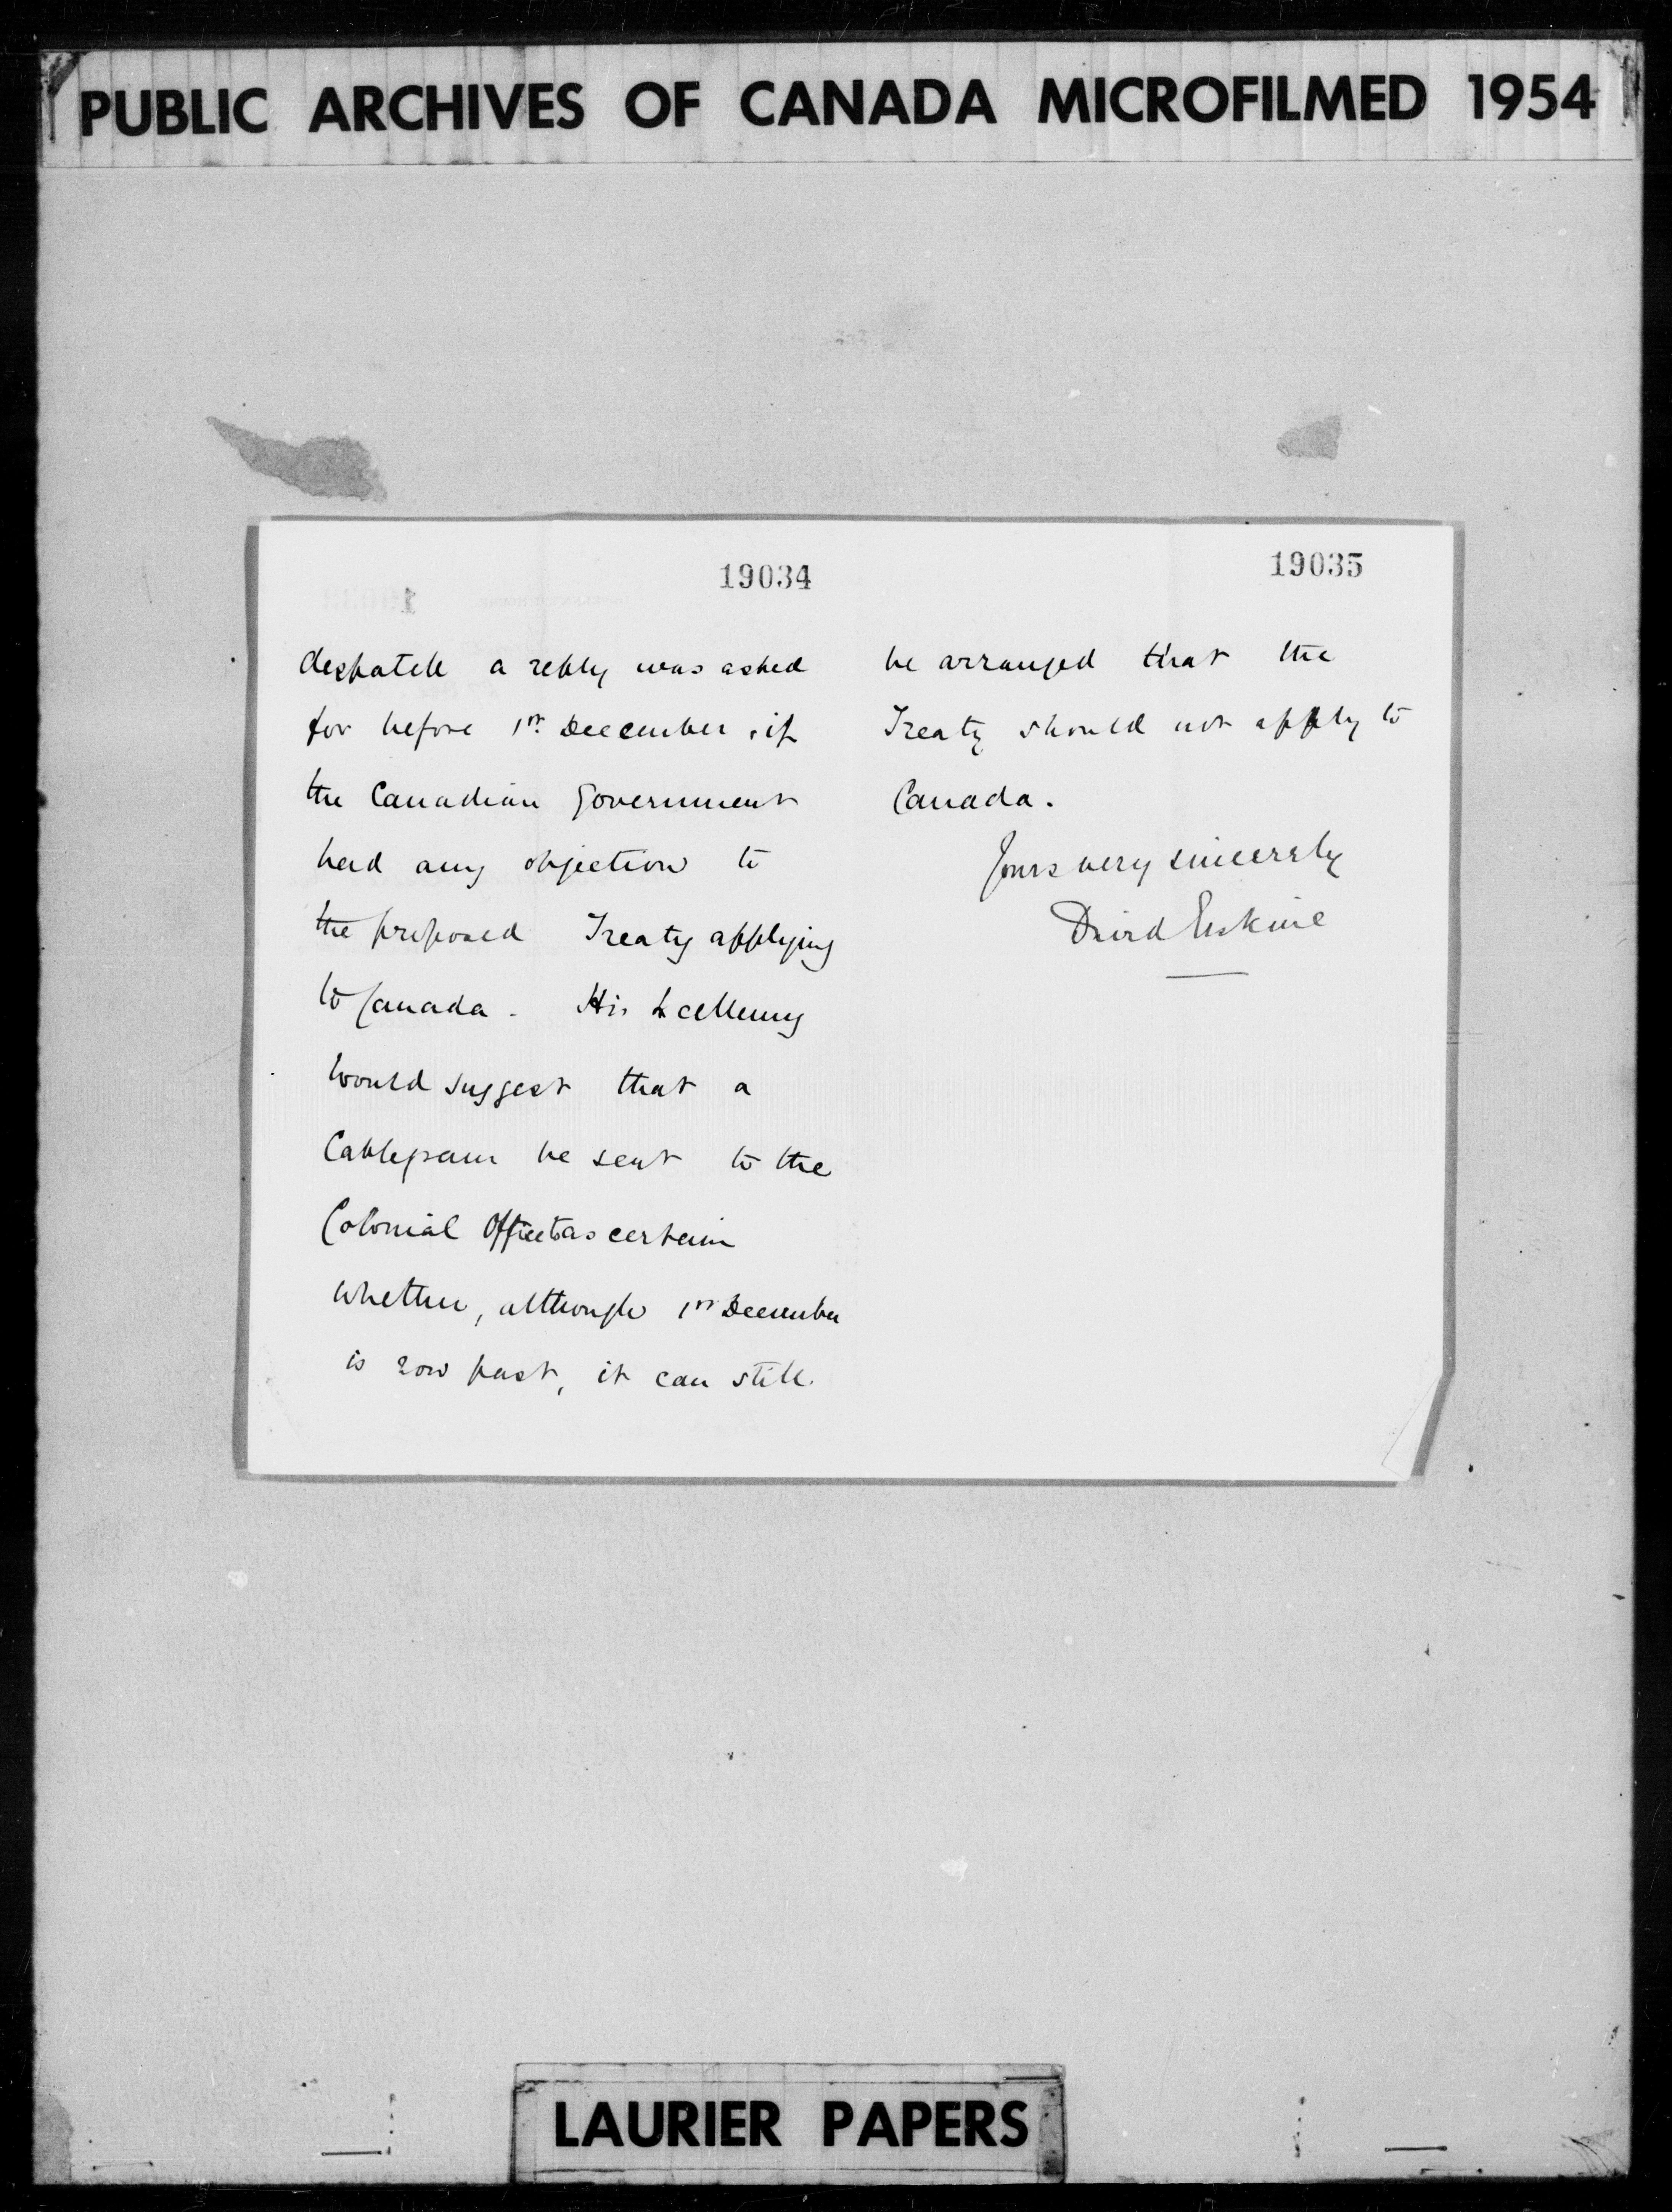 PUBLIC ARCHIVES OF CANADA MICROFILMED 1954
19034
despatch a reply was asked
for before 1st December, if
the Canadian Government
had any objection to
the proposed Treaty applying
to Canada. His Excellency
would suggest that a
Cablegram be sent to the
Colonial Office to ascertain
whether, although 1st December
is now past, it can still
19035
be arranged that the
Treaty should not apply to
Canada.
Yours very sincerely
David Erskine
LAURIER PAPERS